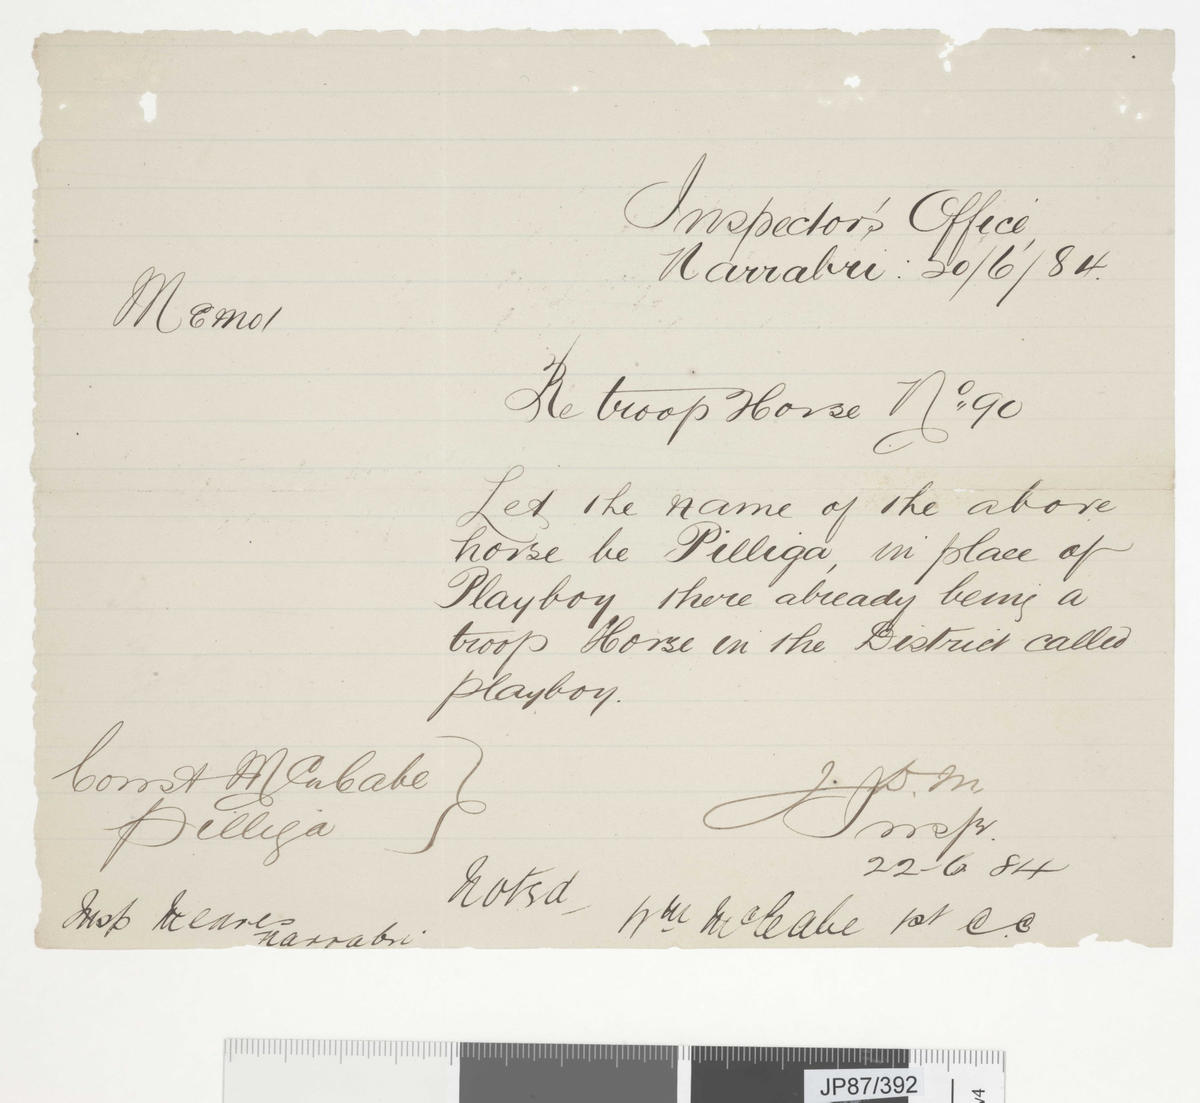 Inspector's Office,
Narrabri: 20/6/84.
Memo/
Re troop Horse No 90
Let the name of the above
horse be Pilliga, in place of
Playboy there already being a
troop Horse in the District called
playboy.
Const McCabe
Pilliga
J. D. M
Inspr.
22-6 84
Noted
Wm McCabe 1st C.C
Insp Meares
Narrabri
JP87/392